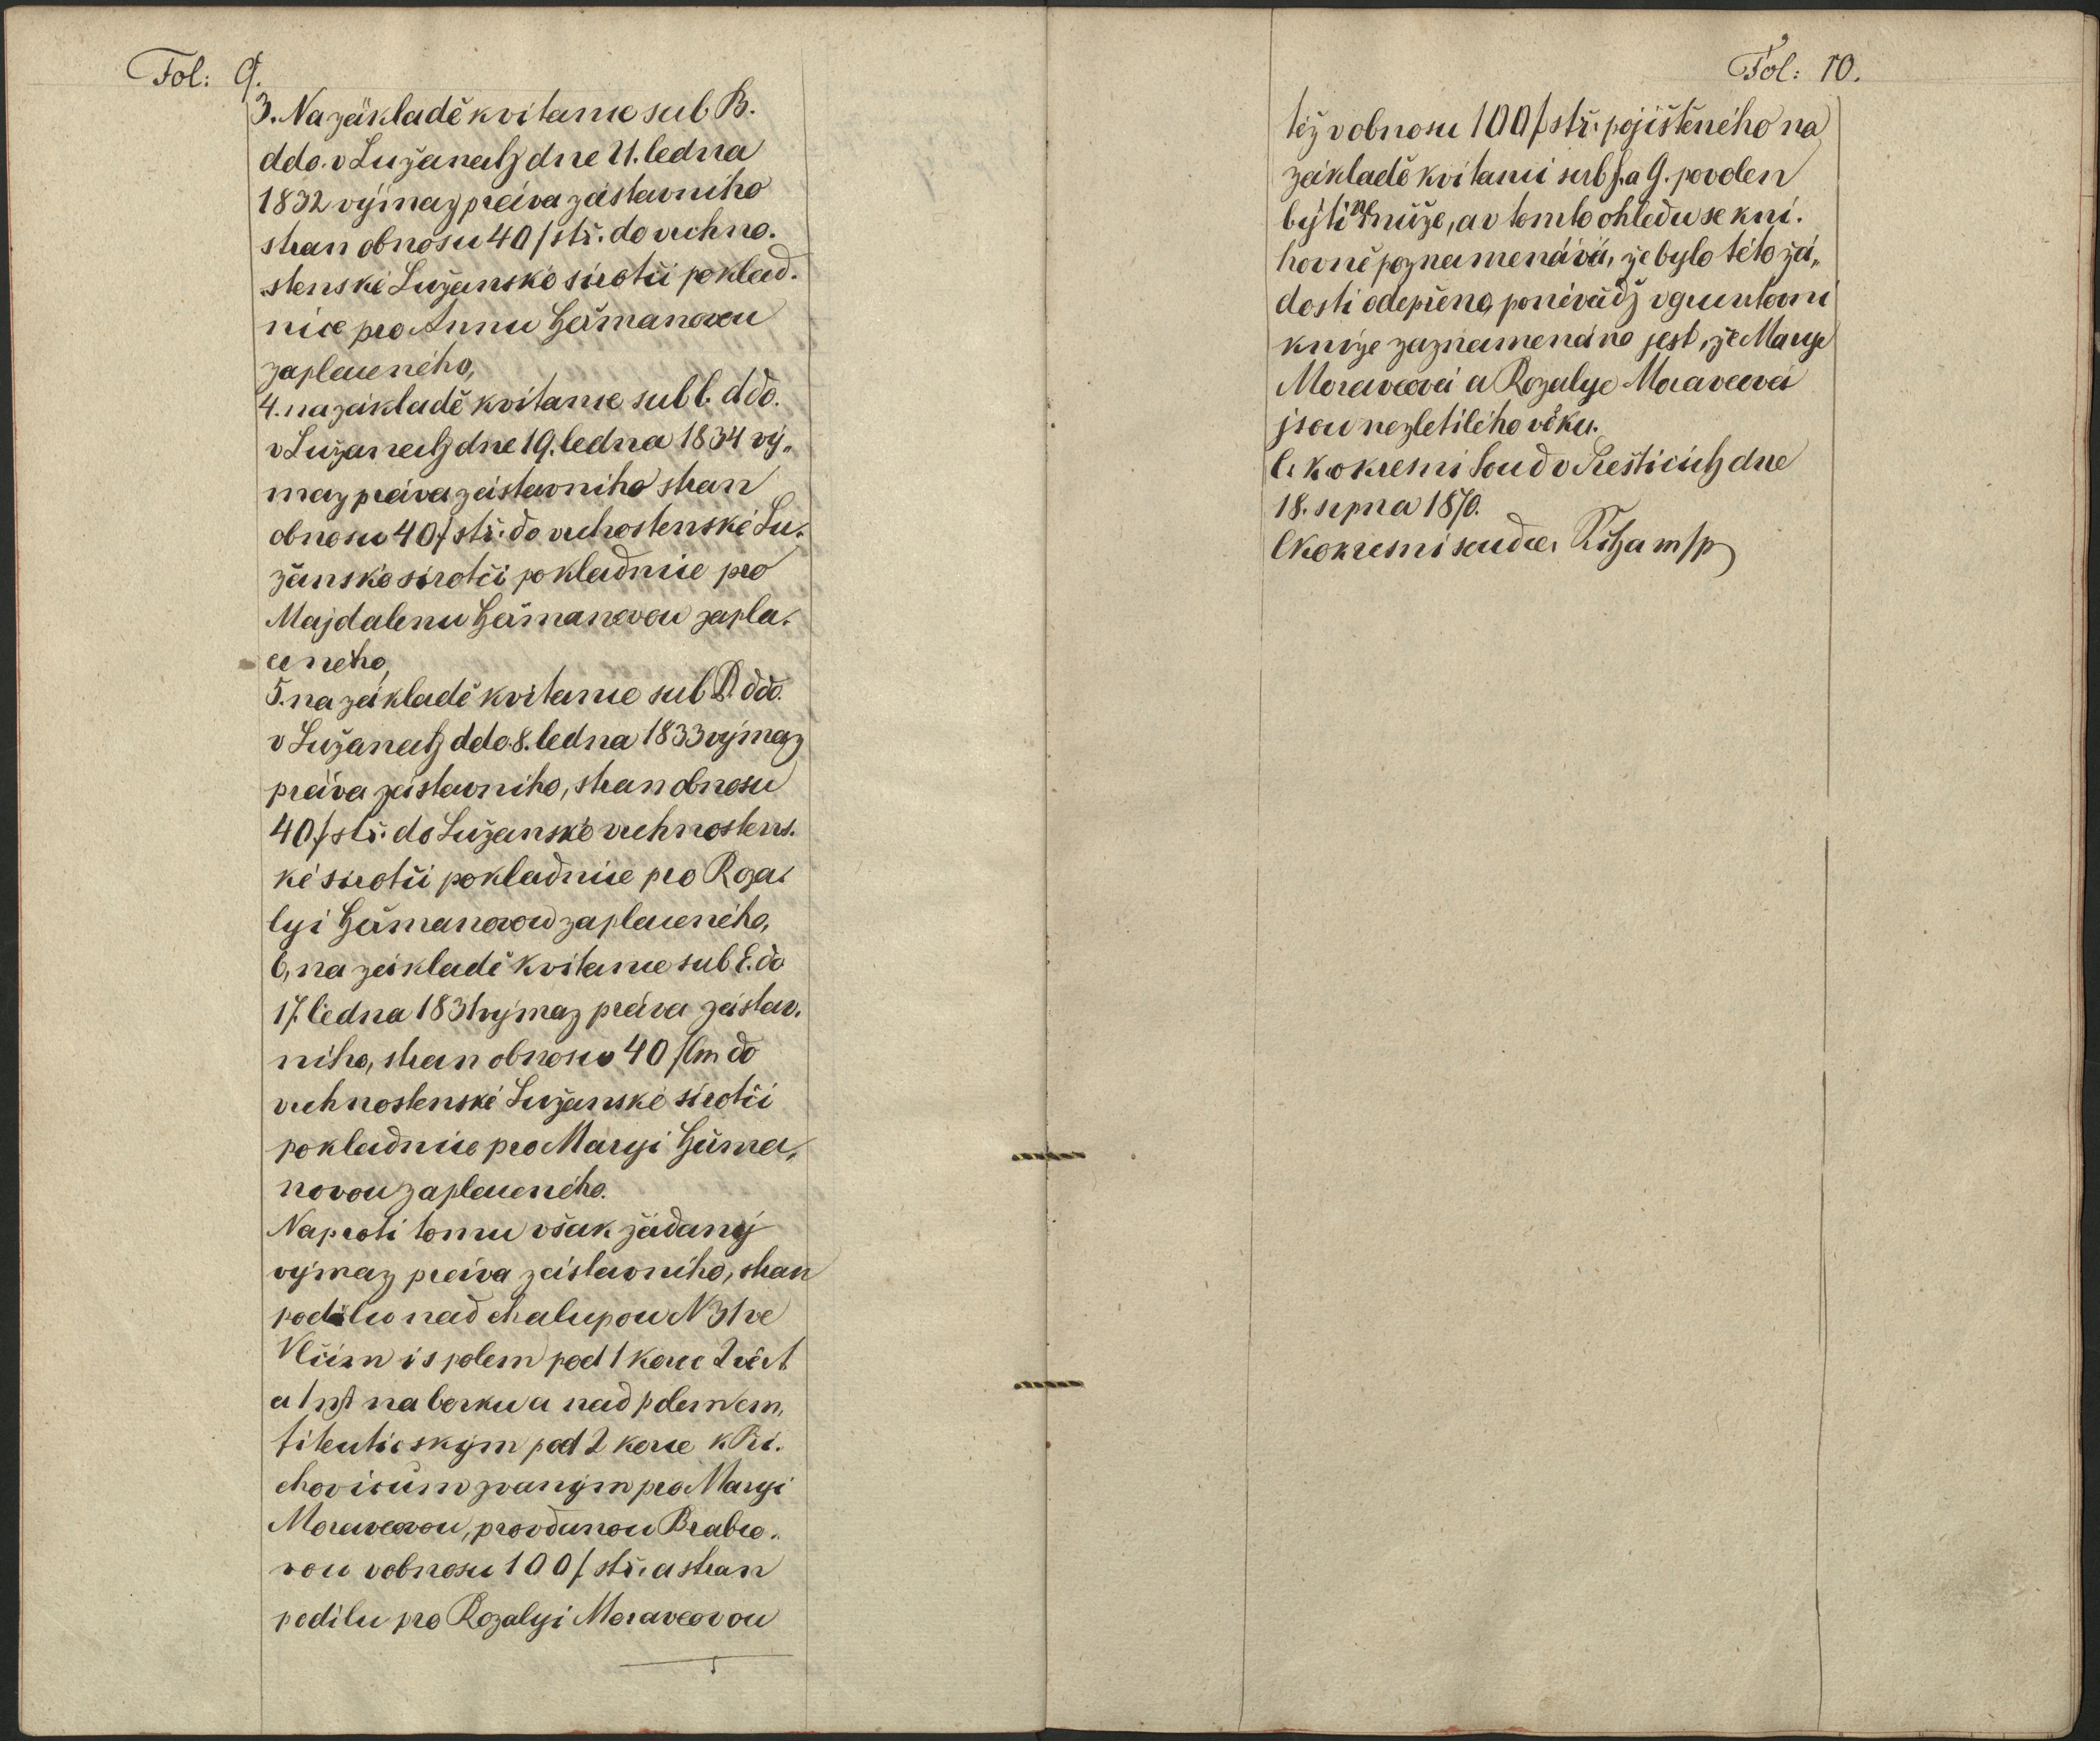 Fol: 9.
3. Na základě kvitance sub B.
ddo. v Lužanech dne 21. ledna
1832 výmaz práva zástavního
stran obnosu 40 f stř. do vrchno-
stenské Lužanské sirotčí poklad-
nice pro Annu Heřmanovou
zaplaceného,
4. na základě kvitance sub C. ddo.
v Lužanech dne 19. ledna 1834 vý-
maz práva zástavního stran
obnosu 40 f stř. do vrchostenské Lu-
žanské sirotčí pokladnice pro
Majdalenu Heřmanovou zapla-
ceného,
5. na základě kvitance sub D. ddo.
v Lužanech ddo. 8. ledna 1833 výmaz
práva zástavního, stran obnosu
40 f stř. do Lužanské vrchnostens-
ké sirotčí pokladnice pro Roza-
lyi Heřmanovou zaplaceného,
6, na základě kvitance sub E. do
17. ledna 1831 výmaz práva zástav-
ního, stran obnosu 40 f Cm do
vrchnostenské Lužanské sirotčí
pokladnice pro Maryi Heřma-
novou zaplaceného.
Naproti tomu však žádaný
výmaz práva zástavního, stran
podílu nad chalupou N 31 ve
Vlčím i s polem pod 1 korce 2 věrt
a 1 na borku a nad polem em-
fiteutickým pod 2 korce k Při-
chovicům zvaným pro Maryi
Moravcovou, provdanou Brabco-
vou v obnosu 100 f. stř. a stran
podílu pro Rozalyi Moravcovou
Fol: 10.
též v obnosu 100 f stř. pojištěného na
základě kvitancí sub f. a G. povolen
býti nemůže, a v tomto ohledu se kni-
hovně poznamenává, že bylo této žá-
dosti odepřeno, poněvádž v gruntovní
knize zaznamenáno jest, že Marye
Moravcová a Rozalye Moravcová
jsou nezletilého věku.
C. k. okresní soud v Přešticích dne
18. srpna 1870.
C k okresní soudce. m/p